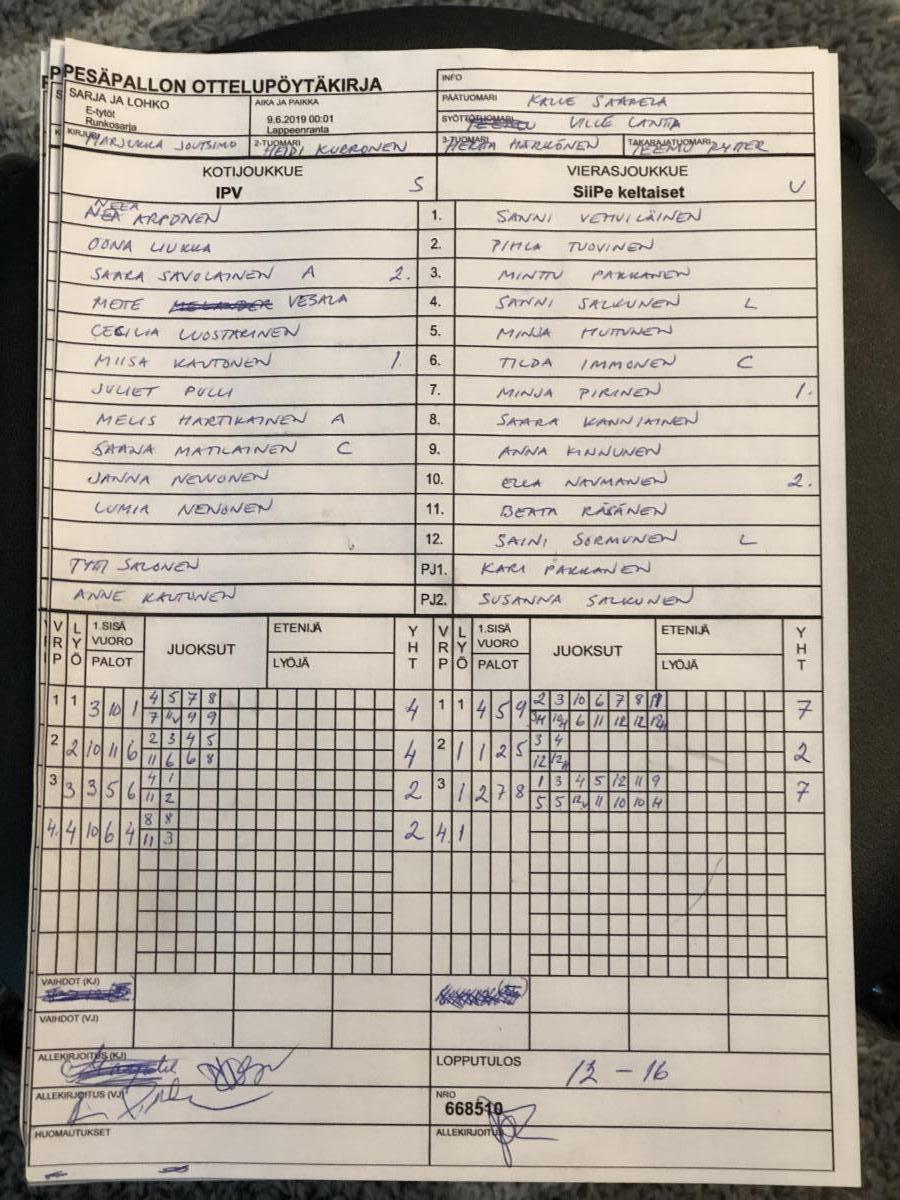 PESÄPALLON OTTELUPÖYTÄKIRJA
INFO
SARJA JA LOHKO
E-tytöt
Runkosarja
AIKA JA PAIKKA
9.6.2019 00:01
Lappeenranta
PÄÄTUOMARI KALLE SAARELA
SYÖTTÖTUOMARI VILLE LANTA
KIRJURI MARJUKKA JOUTSIMO
2-TUOMARI HEIDI KURRONEN
3-TUOMARI HERTTA HÄRKÖNEN
TAKARAJATUOMARI TEEMU RYTTER
KOTIJOUKKUE
IPV S
VIERASJOUKKUE
SiiPe keltaiset U
NEEA
NEA ARPONEN 1. SANNI VEHVILÄINEN
OONA LIUKKA 2. PIHLA TUOVINEN
SAARA SAVOLAINEN A 2. 3. MINTTU PAKKANEN
METTE MELANDER VESALA 4. SANNI SALKUNEN L
CECILIA LUOSTARINEN 5. MINJA MUTUNEN
MIISA KAUTONEN 1. 6. TILDA IMMONEN C
JULIET PULLI 7. MINJA PIRINEN 1.
MELIS HARTIKAINEN A 8. SAARA KANNIAINEN
SAANA MATILAINEN C 9. ANNA KINNUNEN
JANNA NEVVONEN 10. ELLA NAUMANEN 2.
LUMIA NENONEN 11. BERTA RÄSÄNEN
12. SAINI SORMUNEN L
TYTTI SALONEN PJ1. KARI PAKKANEN
ANNE KAUTONEN PJ2. SUSANNA SALKUNEN
VRP LYÖ 1.SISÄ VUORO PALOT JUOKSUT ETENIJÄ LYÖJÄ YHT VRP LYÖ 1.SISÄ VUORO PALOT JUOKSUT ETENIJÄ LYÖJÄ YHT
1 1 3 10 1 4 5 7 8 4 1 1 4 5 9 2 3 10 6 7 8 7
7 9 9 6 11 12 12
2 2 10 11 6 2 3 4 5 4 2 1 1 2 5 3 4 2
11 6 6 8 12
3 3 3 5 6 4 1 2 3 1 2 7 8 1 3 4 5 12 11 9 7
11 2 5 5 11 10 10
4. 4 10 6 4 8 8 2 4. 1
11 3
VAIHDOT (KJ)
VAIHDOT (VJ)
ALLEKIRJOITUS (KJ)
LOPPUTULOS 12 - 16
ALLEKIRJOITUS (VJ)
NRO
668510
HUOMAUTUKSET
ALLEKIRJOITUS